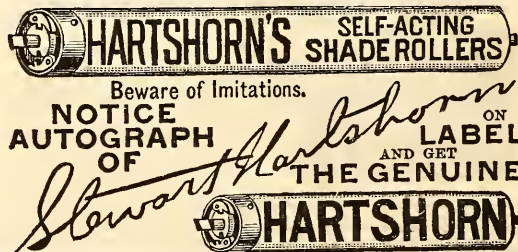 HARTSHORN'S SELF-ACTING SHADE ROLLERS
Beware of Imitations.
NOTICE
AUTOGRAPH
OF
Stewart Hartshorn
ON
LABEL
AND GET
THE GENUINE
HARTSHORN